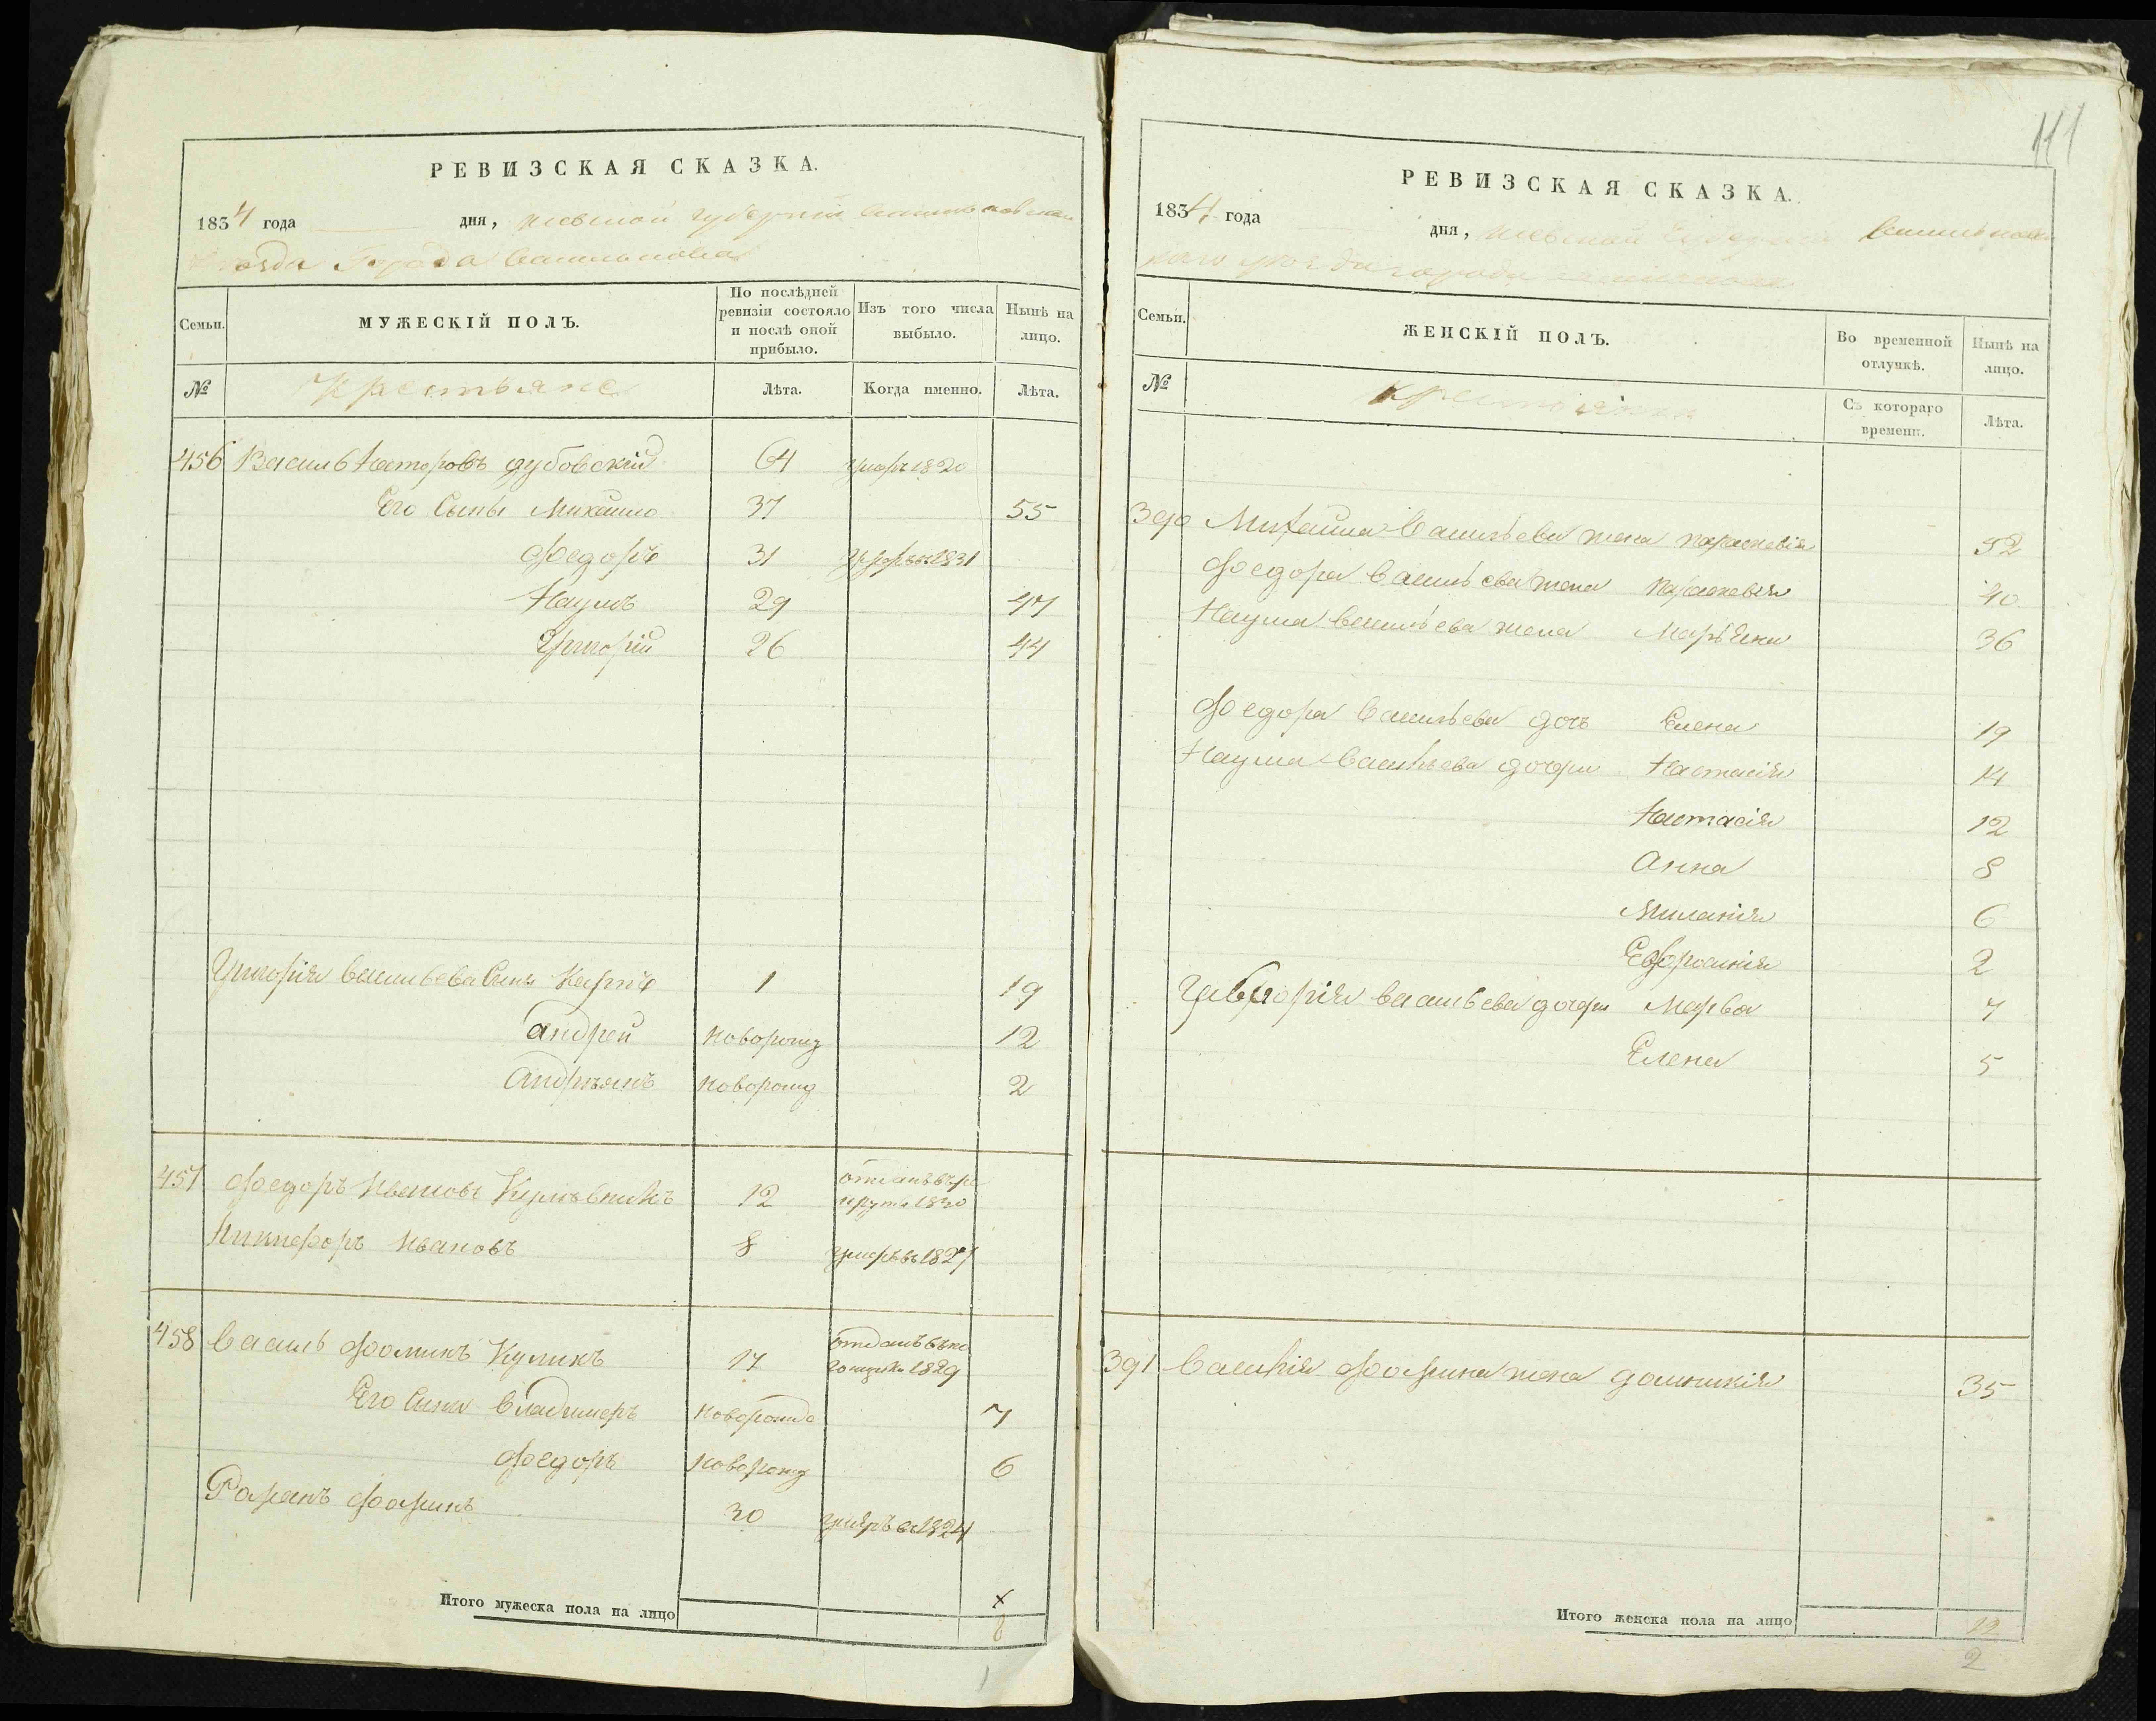 РЕВИЗСКАЯ СКАЗКА.
1834 года дня, Киевской губерніи Васильковскаго
уезда Города Василькова
Семьи.
МУЖЕСКІЙ ПОЛЪ.
По послѣдней ревизіи состояло и послѣ оной прибыло.
Изъ того числа выбыло.
Нынѣ на лицо.
№
Крестьяне
Лѣта.
Когда именно.
Лѣта.
456 Василь Несторовъ Дубовскій 64 умеръ 1820
Его Сыны Михайло 37 55
Федоръ 31 умеръ въ 1831
Наумъ 29 47
Григорій 26 44
Григорія Васильева Сыны Карпъ 1 19
Андрей новорожд 12
Андріянъ новорожд 2
457 Федоръ Ивановъ 12 отданъ въ ре
круты 1830
Никифоръ Ивановъ 8 умеръ въ 1827
458 Василь Фоминъ Куликъ 17 отданъ въ 1829
Его Сыны Владимеръ новорожд 7
Федоръ новорожд 6
Романъ Фоминъ 30 умеръ въ 1824
Итого мужеска пола на лицо
8
111
РЕВИЗСКАЯ СКАЗКА.
1834 года дня, Киевской Губерніи Васильков
скаго уезда города Василькова
Семьи.
ЖЕНСКІЙ ПОЛЪ.
Во временной отлучкѣ.
Нынѣ на лицо.
№
Крестьянки
Съ котораго времени.
Лѣта.
390 Михайла Васильева жена Параскевія 52
Федора Васильева жена Параскевія 40
Наума Васильева жена Марьяна 36
Федора Васильева дочь Елена 19
Наума Васильева дочери Настасія 14
Настасія 12
Анна 8
Миланія 6
Ефросинія 2
Григорія Васильева дочери Марѳа 7
Елена 5
391 Василія Фомина жена Домникія 35
Итого женска пола на лицо
12
2